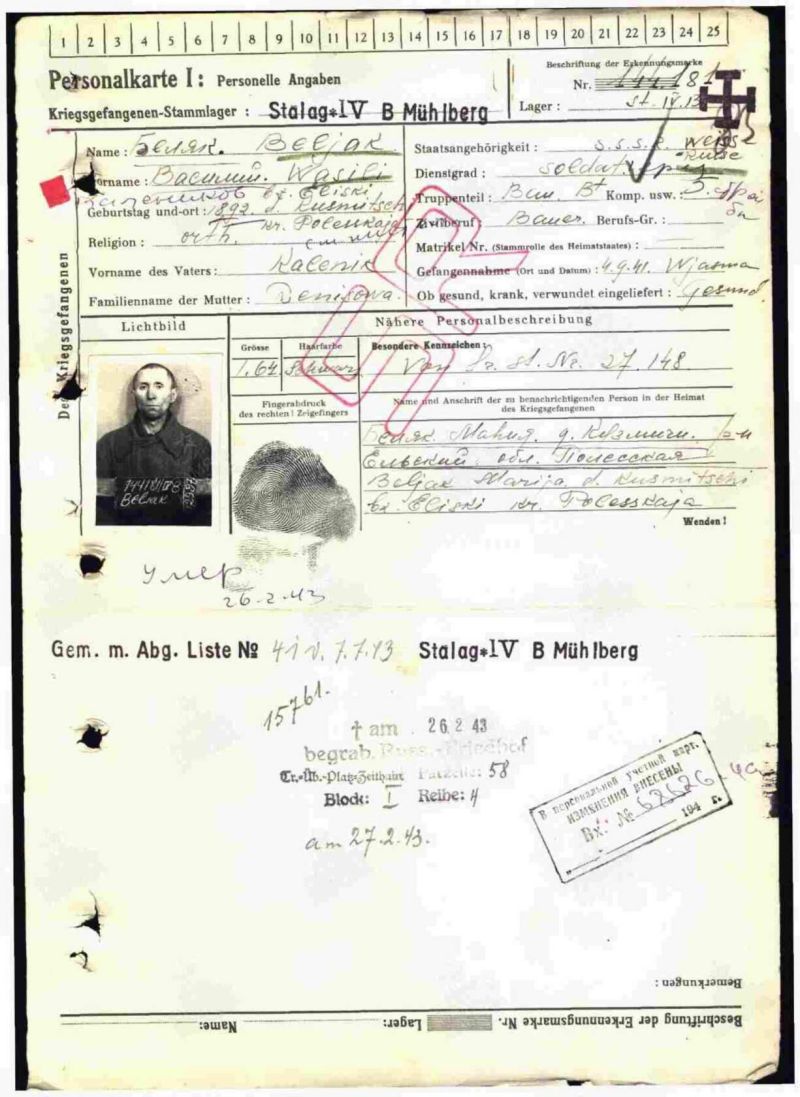 1 2 3 4 5 6 7 8 9 10 11 12 13 14 15 16 17 18 19 20 21 22 23 24 25
Personalkarte I: Personelle Angaben
Beschriftung der Erkennungsmarke
Nr. 144.181
Kriegsgefangenen-Stammlager: Stalag IV B Mühlberg
Lager: St. IV B
Des Kriegsgefangenen
Name: Беляк. Beljak
Vorname: Василий. Wasili
Калеников bz. Eliski
Geburtstag und -ort: 1892 d. Kusmitschi
kr. Poleskaja
Religion: orth.
Vorname des Vaters: Kalenik
Familienname der Mutter: Denisowa.
Staatsangehörigkeit: S.S.S.R. Weiss
Russe
Dienstgrad: Soldat
Truppenteil: Bau. Bt Komp. usw.: 3.
Zivilberuf: Bauer. Berufs-Gr.:
Matrikel Nr. (Stammrolle des Heimatstaates):
Gefangennahme (Ort und Datum): 4.9.41. Wjasma
Ob gesund, krank, verwundet eingeliefert: gesund.
Lichtbild
Nähere Personalbeschreibung
Grösse
Haarfarbe
Besondere Kennzeichen:
1.64 Schwarz
Von Fr. St. Nr. 27.148
Fingerabdruck
des rechten! Zeigefingers
Name und Anschrift der zu benachrichtigenden Person in der Heimat
des Kriegsgefangenen
Беляк. Мария. д. Кузмичи. р-н
Ельский. обл. Полесская
Beljak Marija d. Kusmitschi
bz. Eliski kr. Polesskaja
Wenden!
Беляк
Умер
26.2.43
Gem. m. Abg. Liste № 41 v. 7.7.43 Stalag IV B Mühlberg
15761.
† am 26.2.43
begrab. Russ.-Friedhof
Tr.-Üb.-Platz-Zeithain Parzelle: 58
Block: I Reihe: 4
am 27.2.43.
В персональной учетной карт.
ИЗМЕНЕНИЯ ВНЕСЕНЫ
Вх. № 68626
194 г.
Bemerkungen:
Beschriftung der Erkennungsmarke Nr. Lager: Name: